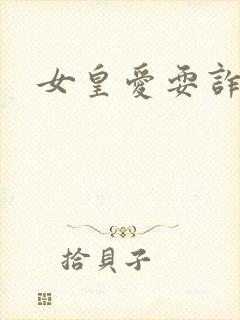 女皇愛耍詐
拾貝子